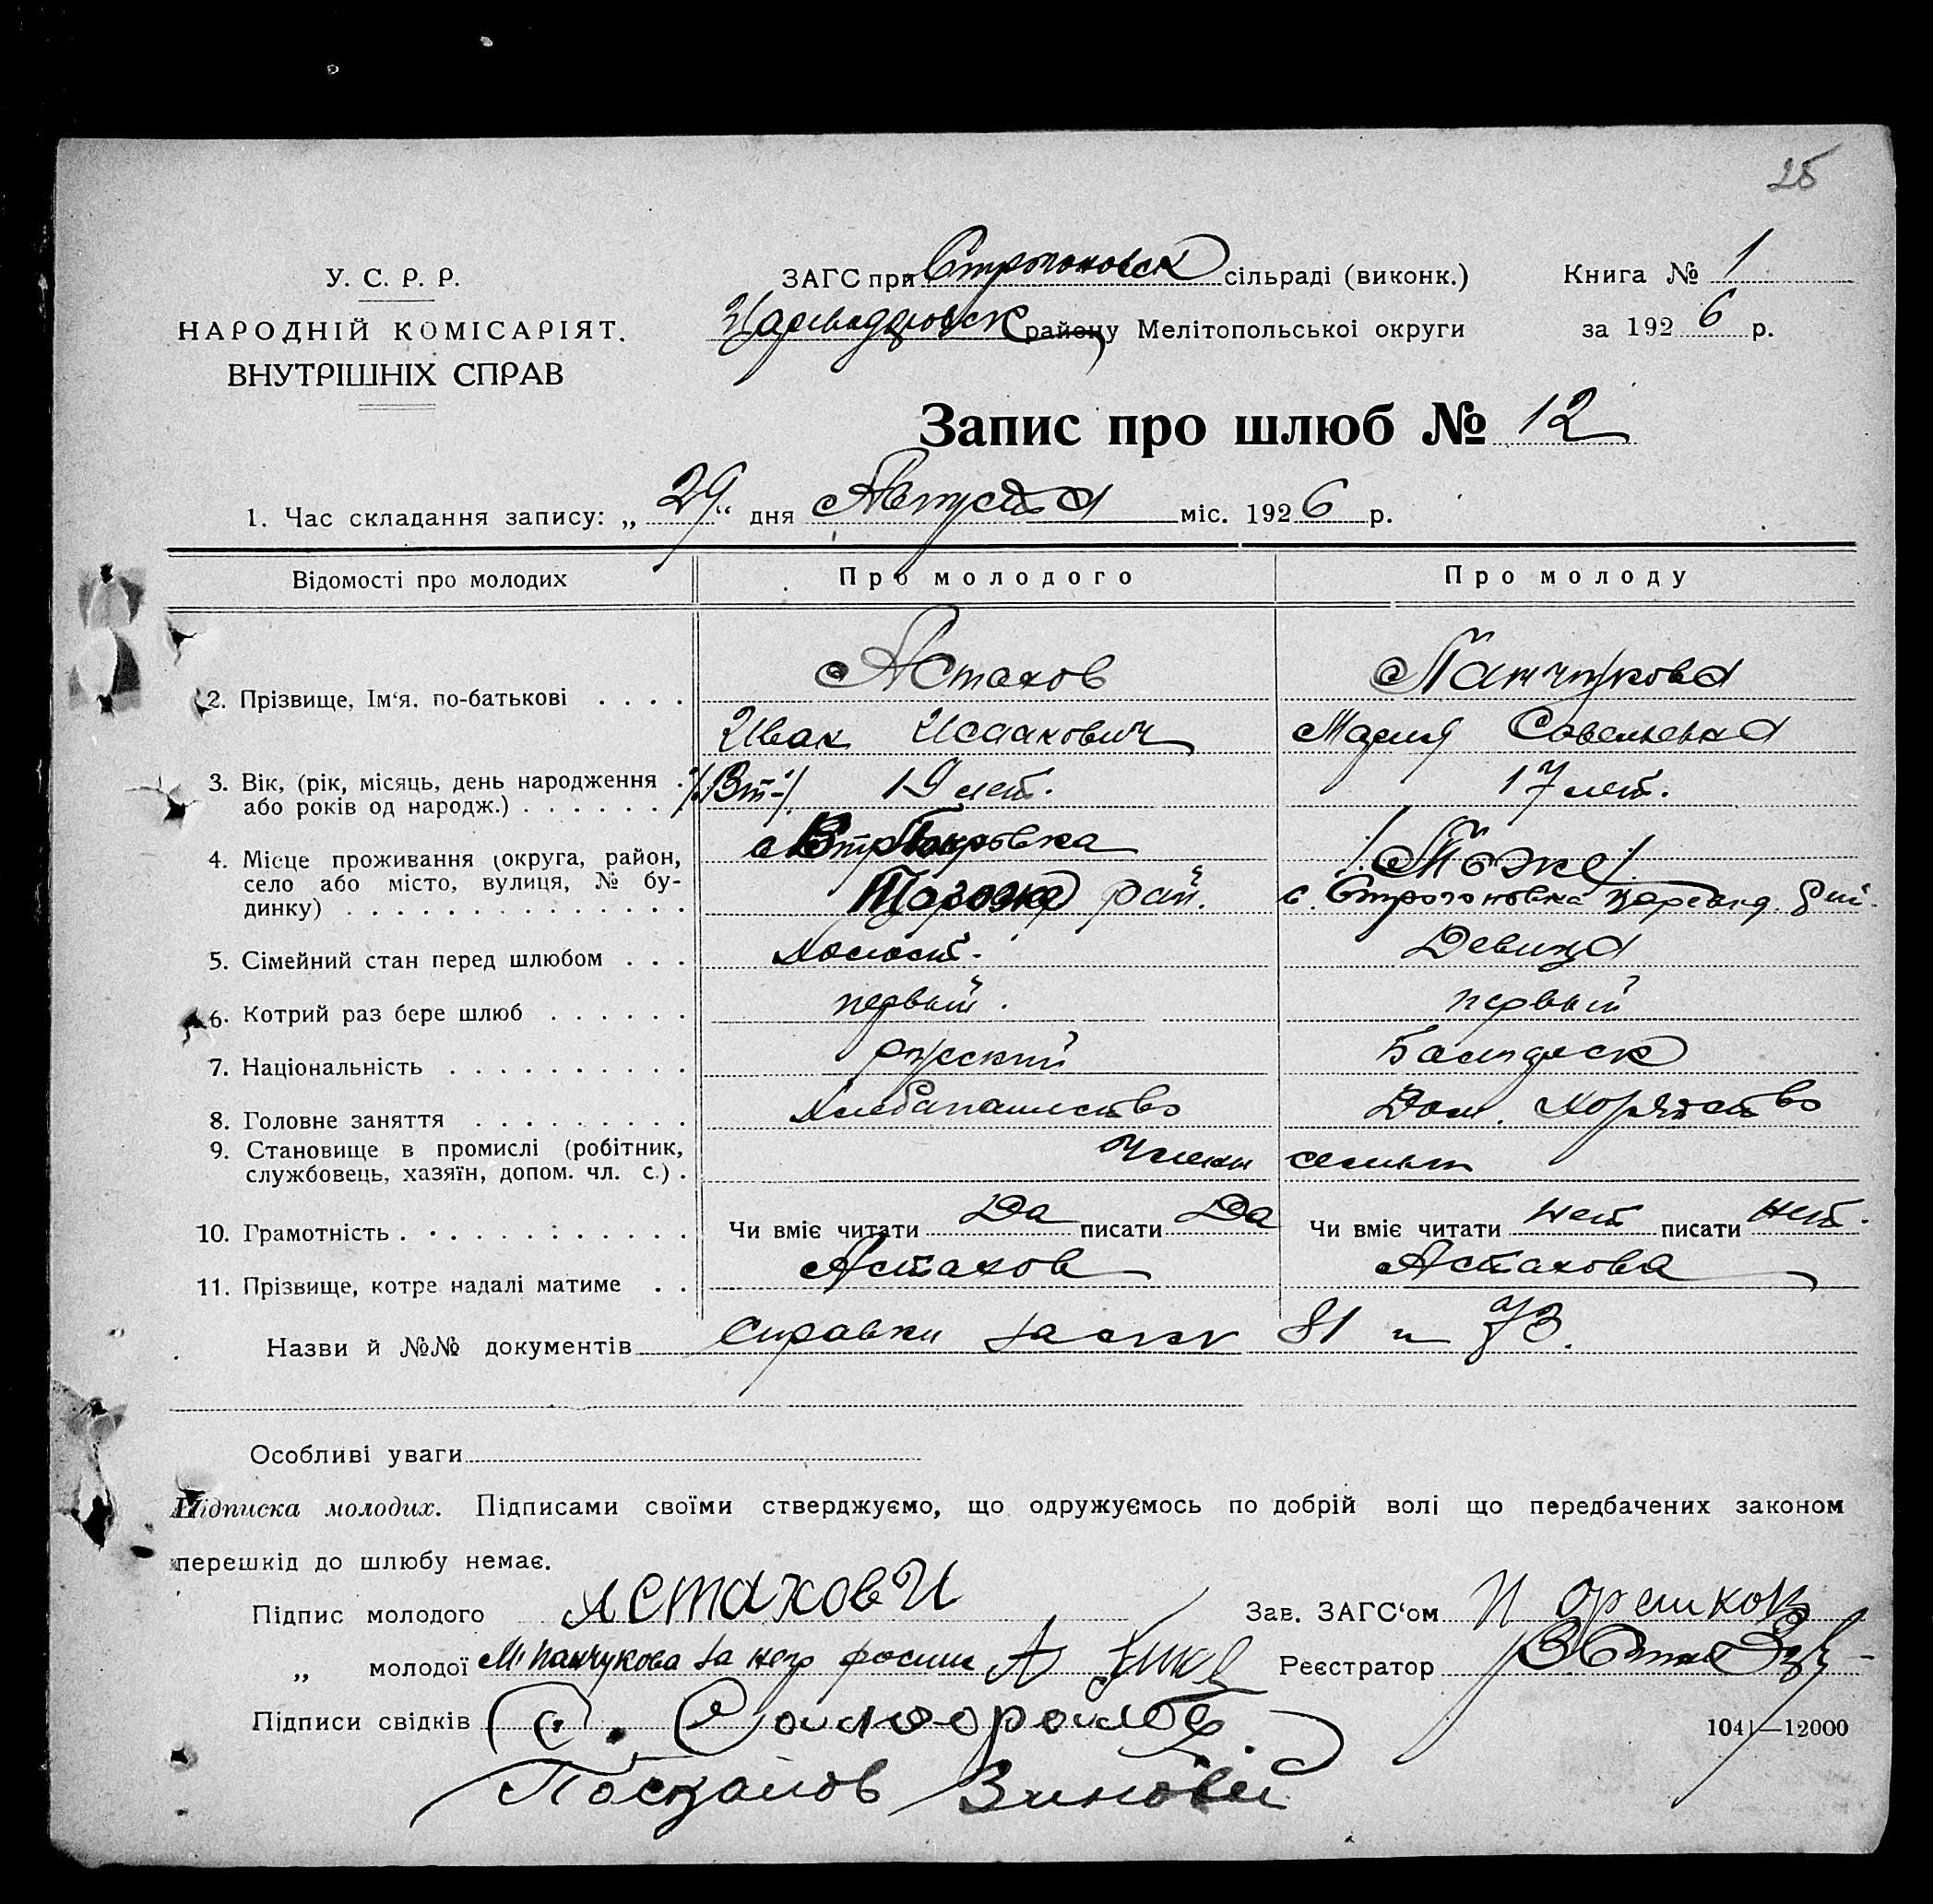 25
У. С. Р. Р.
НАРОДНІЙ КОМІСАРІЯТ.
ВНУТРІШНІХ СПРАВ
ЗАГС при Строгоновск сільраді (виконк.)
Книга № 1
району Мелітопольської округи
за 1926 р.
Запис про шлюб № 12
1. Час складання запису: „29" дня Августа міс. 1926 р.
Відомості про молодих
Про молодого
Про молоду
2. Прізвище, Ім'я, по-батькові . . . .
Астахов
Панчукова
Иван Исаакович
Мария Савельевна
3. Вік, (рік, місяць, день народження
або років од народж.) . . . . . .
19 лет.
17 лет.
4. Місце проживання (округа, район,
село або місто, вулиця, № бу-
динку) . . . . . . . . . . . . . .
рай.
с. Строгоновка
5. Сімейний стан перед шлюбом . . .
холост.
Девица
6. Котрий раз бере шлюб . . . . . .
первый.
первый
7. Національність . . . . . . . . . .
русский
8. Головне заняття . . . . . . . . .
Хлебопашество
Дом. хозяйство
9. Становище в промислі (робітник,
службовець, хазяїн, допом. чл. с.) .
Члены семьи
10. Грамотність . . . . . . . . . . . .
Чи вміє читати Да писати Да
Чи вміє читати нет писати нет.
11. Прізвище, котре надалі матиме . .
Астахов
Астахова
Назви й №№ документів справки за 81 и 73.
Особливі уваги
Підписка молодих. Підписами своїми стверджуємо, що одружуємось по добрій волі що передбачених законом
перешкід до шлюбу немає.
Підпис молодого Астахов И
Зав. ЗАГС'ом
„ молодої М. Панчукова за негр
Реєстратор
Підписи свідків
1041—12000
Зиновий